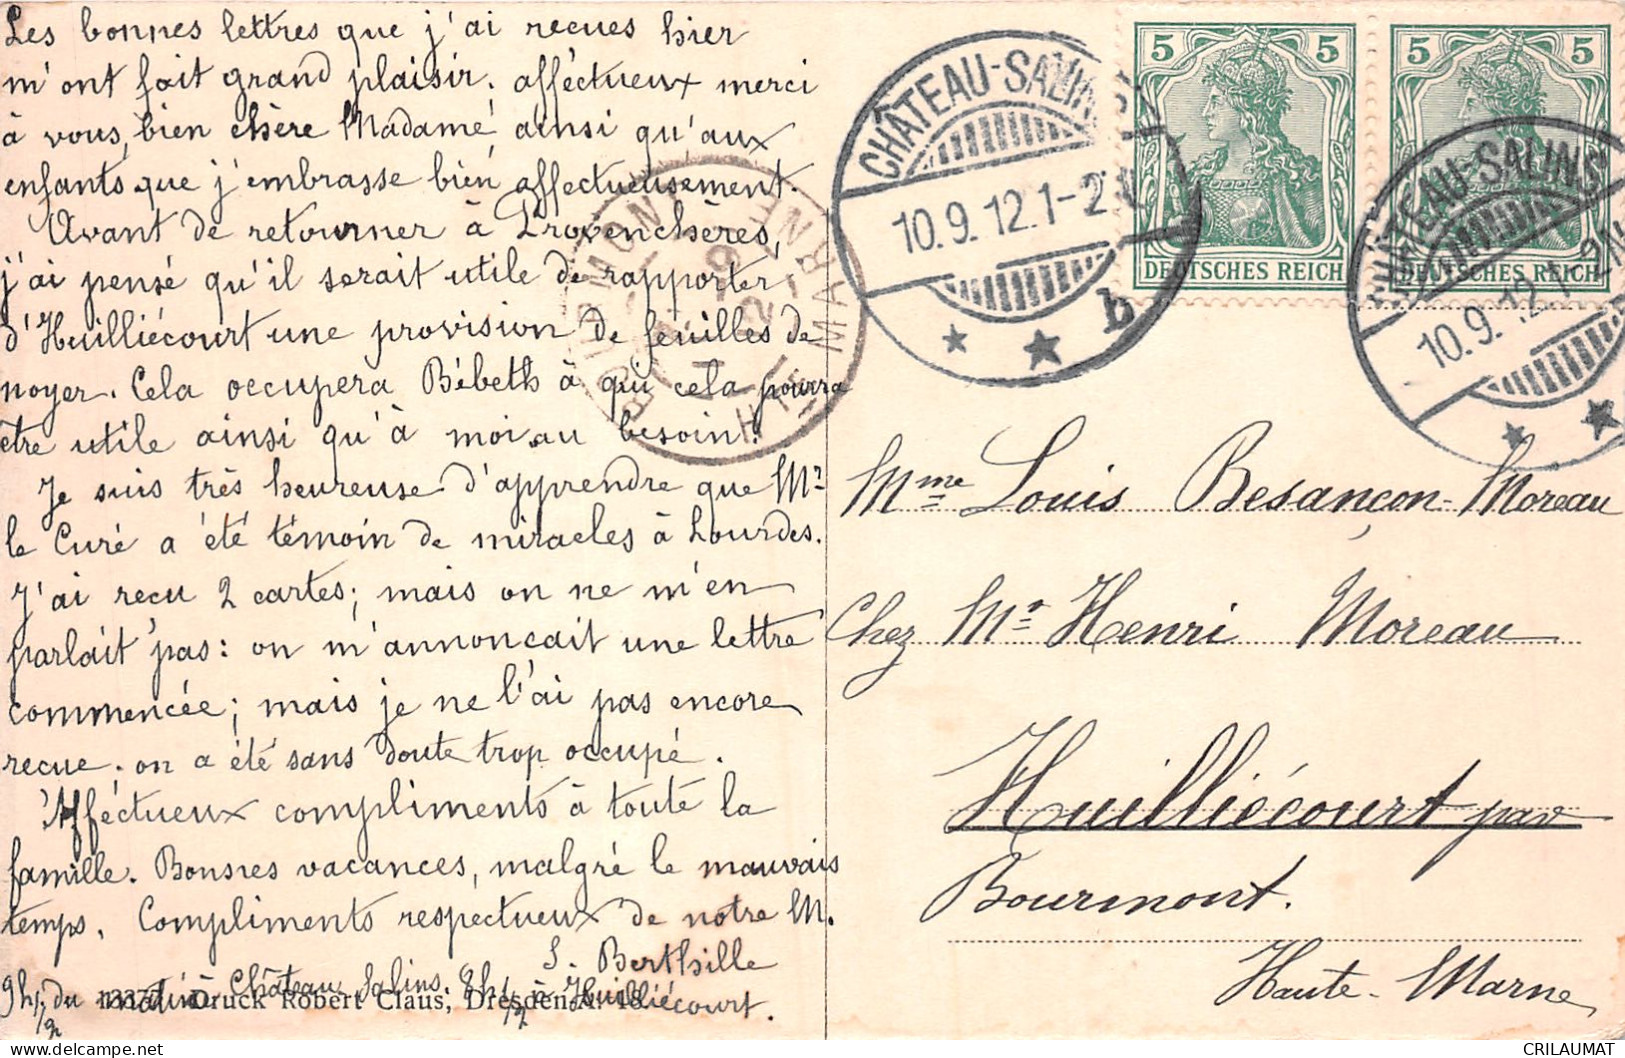 Les bonnes lettres que j'ai recues hier
m'ont fait grand plaisir. afféctueux merci
à vous, bien chère Madame ainsi qu'aux
enfants que j'embrasse bien affectueusement.
Avant de retourner à Provenchères,
j'ai pensé qu'il serait utile de rapporter
d'Huilliécourt une provision de feuilles de
noyer. Cela occupera Bébeth à qui cela pourra
être utile ainsi qu'à moi au besoin.
Je suis très heureuse d'apprendre que Mr
le Curé a été témoin de miracles à Lourdes.
J'ai reçu 2 cartes; mais on ne m'en
parlait pas: on m'annonçait une lettre
commencée; mais je ne l'ai pas encore
recue. on a été sans doute trop occupé.
Afféctueux compliments à toute la
famille. Bonnes vacances, malgré le mauvais
temps. Compliments respectueux de notre M.
S. Berthille
9h 1/2 du matin à Château Salins. 8h 1/2 à Huilliécourt.
13377 Druck Robert Claus, Dresden-A. 18
5 5
DEUTSCHES REICH
5 5
DEUTSCHES REICH
CHÂTEAU-SALINS
10.9.12.1-2N
b
CHÂTEAU-SALINS
10.9.12.1-2N
BOURMONT
HTE MARNE
Mme Louis Besançon-Moreau
Chez Mr Henri Moreau
Huilliécourt par
Bourmont.
Haute-Marne
CRILAUMAT